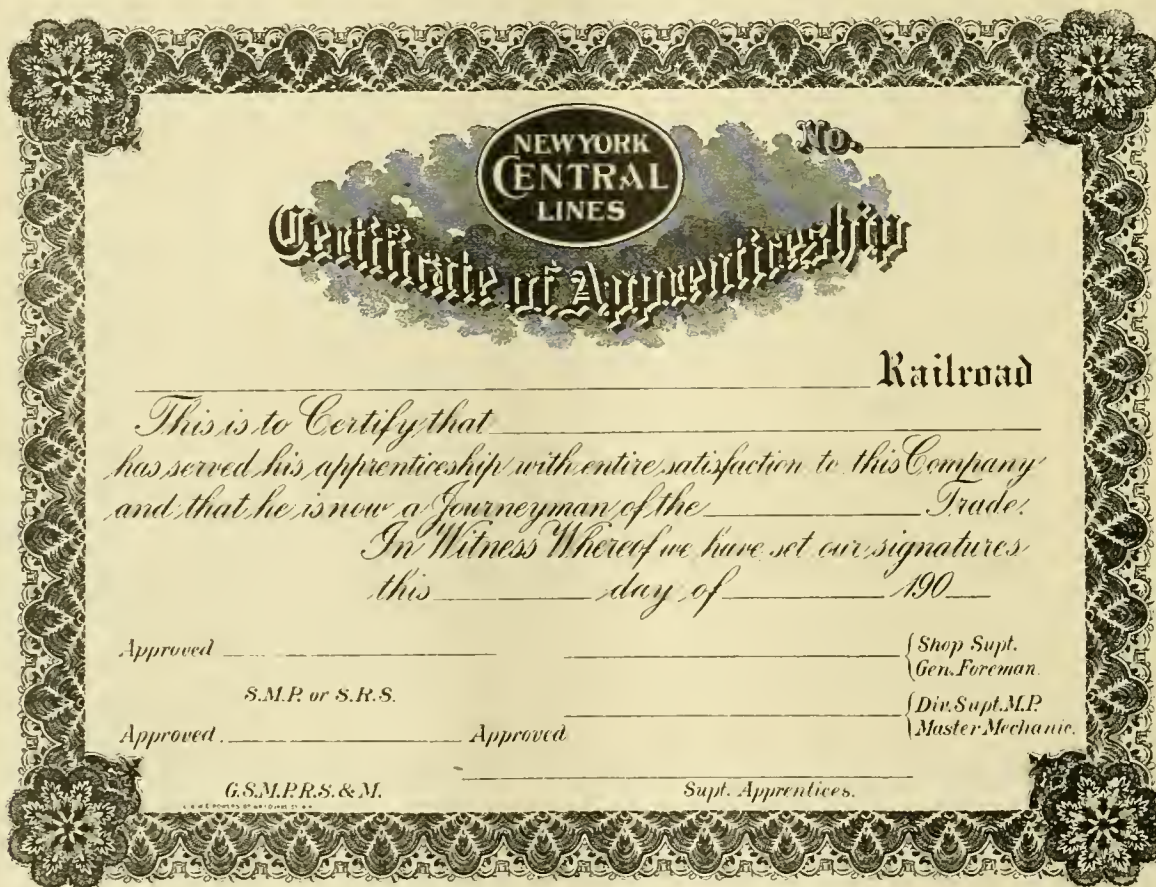 No.
NEW YORK
CENTRAL
LINES
Certificate of Apprenticeship
Railroad
This is to Certify that
has served his apprenticeship with entire satisfaction to this Company
and that he is now a Journeyman of the Trade.
In Witness Whereof we have set our signatures
this day of 190
Approved Shop Supt.
Gen. Foreman.
S.M.P. or S.R.S.
Div. Supt. M.P.
Approved Approved Master Mechanic.
G.S.M.P.R.S. & M. Supt. Apprentices.